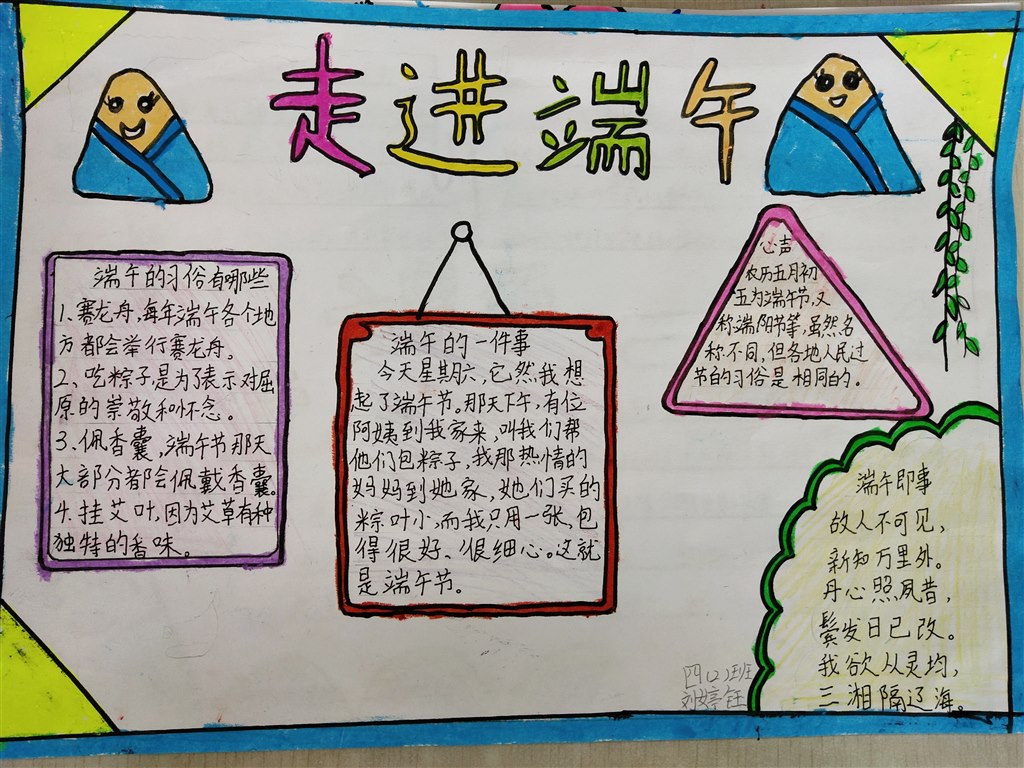 走进端午
端午的习俗有哪些
1、赛龙舟,每年端午各个地
方都会举行赛龙舟。
2、吃粽子,是为了表示对屈
原的崇敬和怀念。
3、佩香囊,端午节那天
大部分者都会佩戴香囊。
4.挂艾叶,因为艾草有种
独特的香味。
端午的一件事
今天星期六,它然我想
起了端午节。那天下午,有位
阿姨到我家来,叫我们帮
他们包粽子,我那热情的
妈妈到她家,她们买的
粽叶小,而我只用一张,包
得很好、很细心。这就
是端午节。
心声
农历五月初
五为端午节,又
称端阳节等,虽然名
称不同,但各地人民过
节的习俗是相同的。
端午即事
故人不可见,
新知万里外。
丹心照夙昔,
鬓发日已改。
我欲从灵均,
三湘隔辽海。
四(2)班
刘婷钰